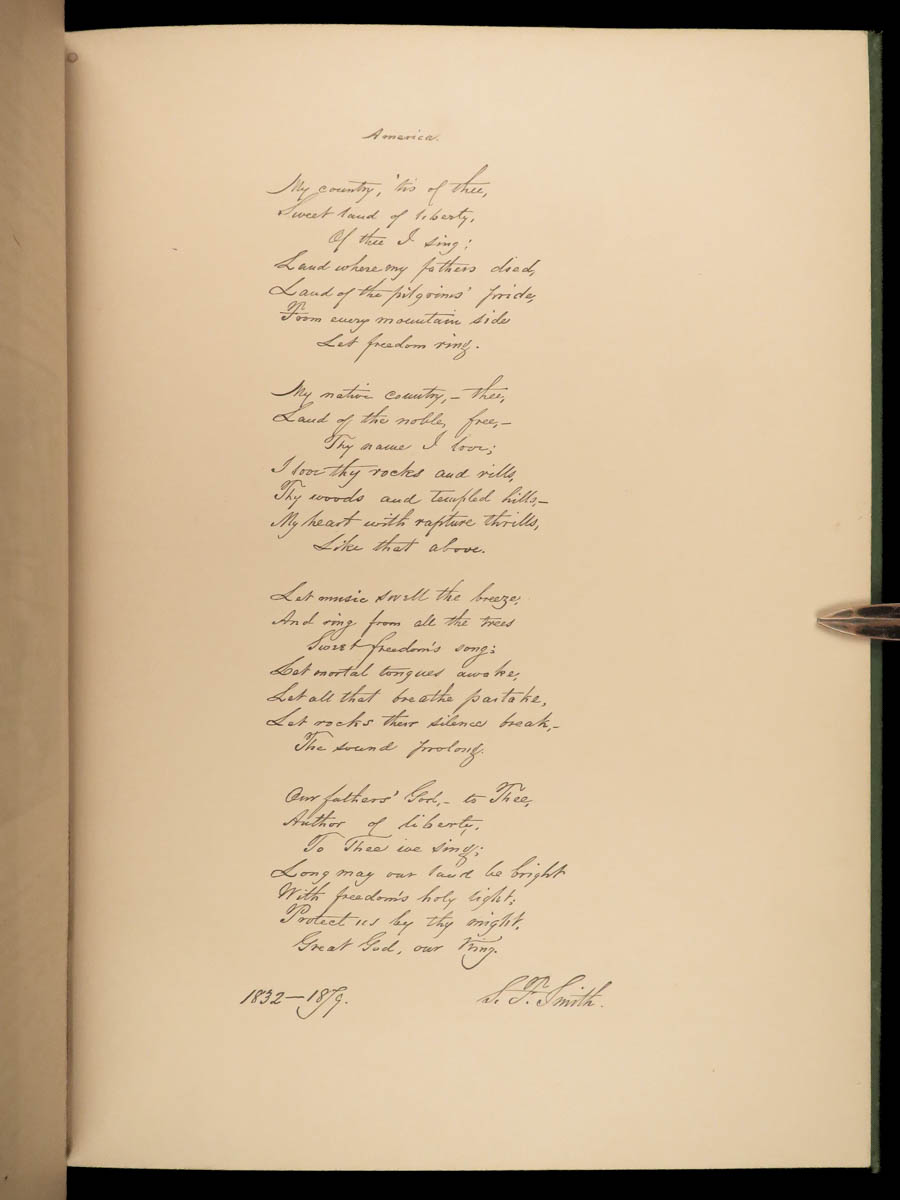 America.
My country, 'tis of thee,
Sweet land of liberty,
Of thee I sing;
Land where my fathers died,
Land of the pilgrims' pride,
From every mountain side
Let freedom ring.
My native country, – thee,
Land of the noble, free, –
Thy name I love;
I love thy rocks and rills,
Thy woods and templed hills, –
My heart with rapture thrills,
Like that above.
Let music swell the breeze,
And ring from all the trees
Sweet freedom's song;
Let mortal tongues awake,
Let all that breathe partake,
Let rocks their silence break, –
The sound prolong.
Our fathers' God, – to Thee,
Author of liberty,
To Thee we sing;
Long may our land be bright
With freedom's holy light;
Protect us by thy might,
Great God, our King.
1832–1879. S. F. Smith.